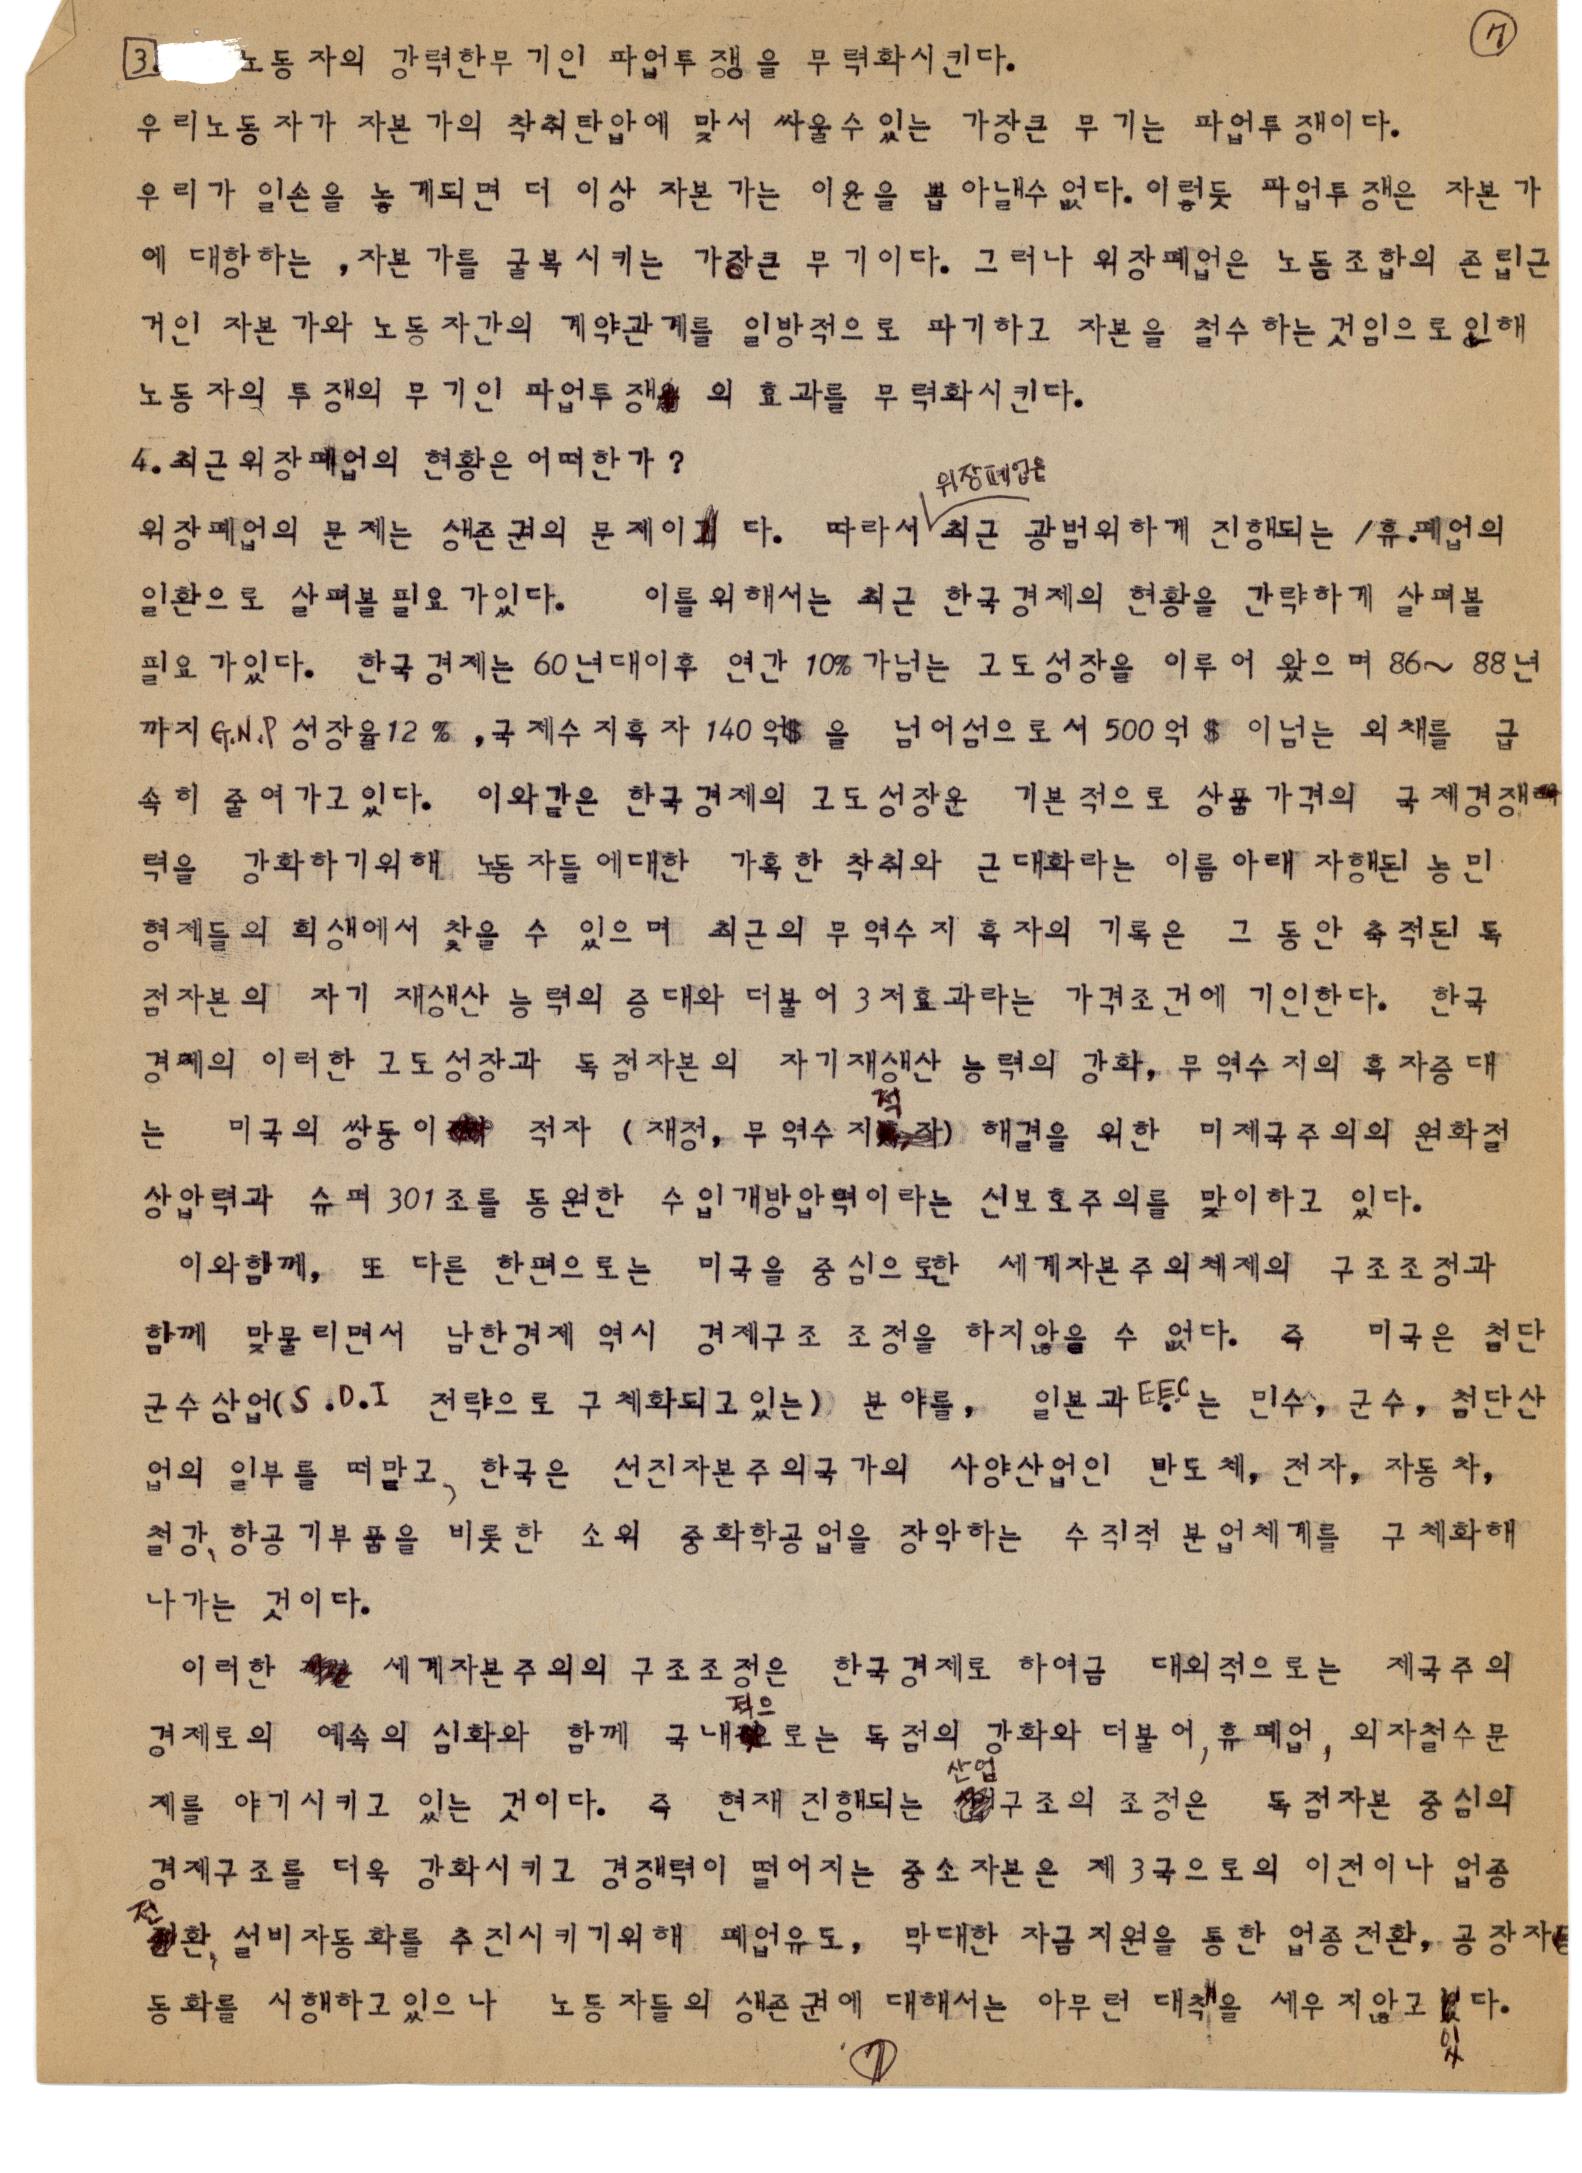 ⑦
3. 노동자의 강력한무기인 파업투쟁을 무력화시킨다.
우리노동자가 자본가의 착취탄압에 맞서 싸울수있는 가장큰 무기는 파업투쟁이다.
우리가 일손을 놓게되면 더 이상 자본가는 이윤을 뽑아낼수없다. 이렇듯 파업투쟁은 자본가
에 대항하는 ,자본가를 굴복시키는 가장큰 무기이다. 그러나 위장폐업은 노돔조합의 존립근
거인 자본가와 노동자간의 계약관계를 일방적으로 파기하고 자본을 철수하는것임으로인해
노동자의 투쟁의 무기인 파업투쟁 의 효과를 무력화시킨다.
4.최근위장폐업의 현황은어떠한가?
위장폐업은
위장폐업의 문제는 생존권의 문제이 다. 따라서 최근 광범위하게 진행되는 /휴.폐업의
일환으로 살펴볼필요가있다. 이를위해서는 최근 한국경제의 현황을 간략하게 살펴볼
필요가있다. 한국경제는 60년대이후 연간 10%가넘는 고도성장을 이루어 왔으며 86~ 88년
까지 G.N.P 성장율12% ,국제수지흑자 140억$ 을 넘어섬으로서 500억$ 이넘는 외채를 급
속히 줄여가고있다. 이와같은 한국경제의 고도성장운 기본적으로 상품가격의 국제경쟁
력을 강화하기위해 노동자들에대한 가혹한 착취와 근대화라는 이름아래 자행된 농민
형제들의 희생에서 찾을 수 있으며 최근의 무역수지 흑자의 기록은 그 동안 축적된 독
점자본의 자기 재생산 능력의 증대와 더불어 3저효과라는 가격조건에 기인한다. 한국
경페의 이러한 고도성장과 독점자본의 자기재생산 능력의 강화, 무역수지의 흑자증대
적
는 미국의 쌍둥이 적자 (재정, 무역수지 자) 해결을 위한 미제국주의의 원화절
상압력과 슈퍼 301조를 동원한 수입개방압력이라는 신보호주의를 맞이하고 있다.
이와함께, 또 다른 한편으로는 미국을 중심으로한 세계자본주의체제의 구조조정과
함께 맞물리면서 남한경제 역시 경제구조 조정을 하지않을 수 없다. 즉 미국은 첨단
군수삼업(S.D.I 전략으로 구체화되고있는) 분야를, 일본과 E.E.C는 민수, 군수, 첨단산
업의 일부를 떠맡고, 한국은 선진자본주의국가의 사양산업인 반도체, 전자, 자동차,
철강, 항공기부품을 비롯한 소위 중화학공업을 장악하는 수직적 분업체계를 구체화해
나가는 것이다.
이러한 세계자본주의의 구조조정은 한국경제로 하여금 대외적으로는 제국주의
적으
경제로의 예속의 심화와 함께 국내 로는 독점의 강화와 더불어, 휴폐업, 외자철수문
산업
제를 야기시키고 있는 것이다. 즉 현재 진행되는 구조의 조정은 독점자본 중심의
경제구조를 더욱 강화시키고 경쟁력이 떨어지는 중소자본은 제3국으로의 이전이나 업종
전
환, 설비자동화를 추진시키기위해 폐업유도, 막대한 자금지원을 통한 업종전환, 공장자
동화를 시행하고있으나 노동자들의 생존권에 대해서는 아무런 대책을 세우지않고 다.
있
⑦